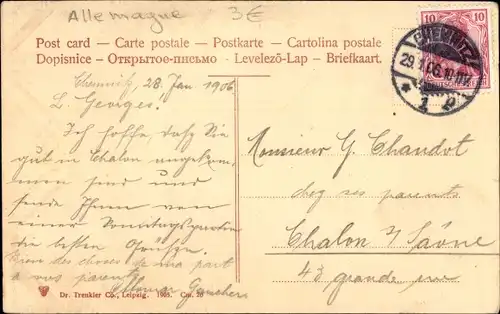 Allemagne 3€
Post card – Carte postale – Postkarte – Cartolina postale
Dopisnice – Открытое-письмо – Levelező-Lap – Briefkaart.
10 10
CHEMNITZ
29.1.06.
* 1
Chemnitz, 28. Jan 1906
L. Georges.
Ich hoffe, daß Sie
gut in Chalon angekom-
men sind und
sende Ihnen von
einer
die besten Grüße.
Bien des choses de ma part
à vos parents
Ottomar
Monsieur G. Chandot
chez ses parents
Chalon s/ Saône
43 grande rue
Dr. Trenkler Co., Leipzig. 1905. Cm. 20